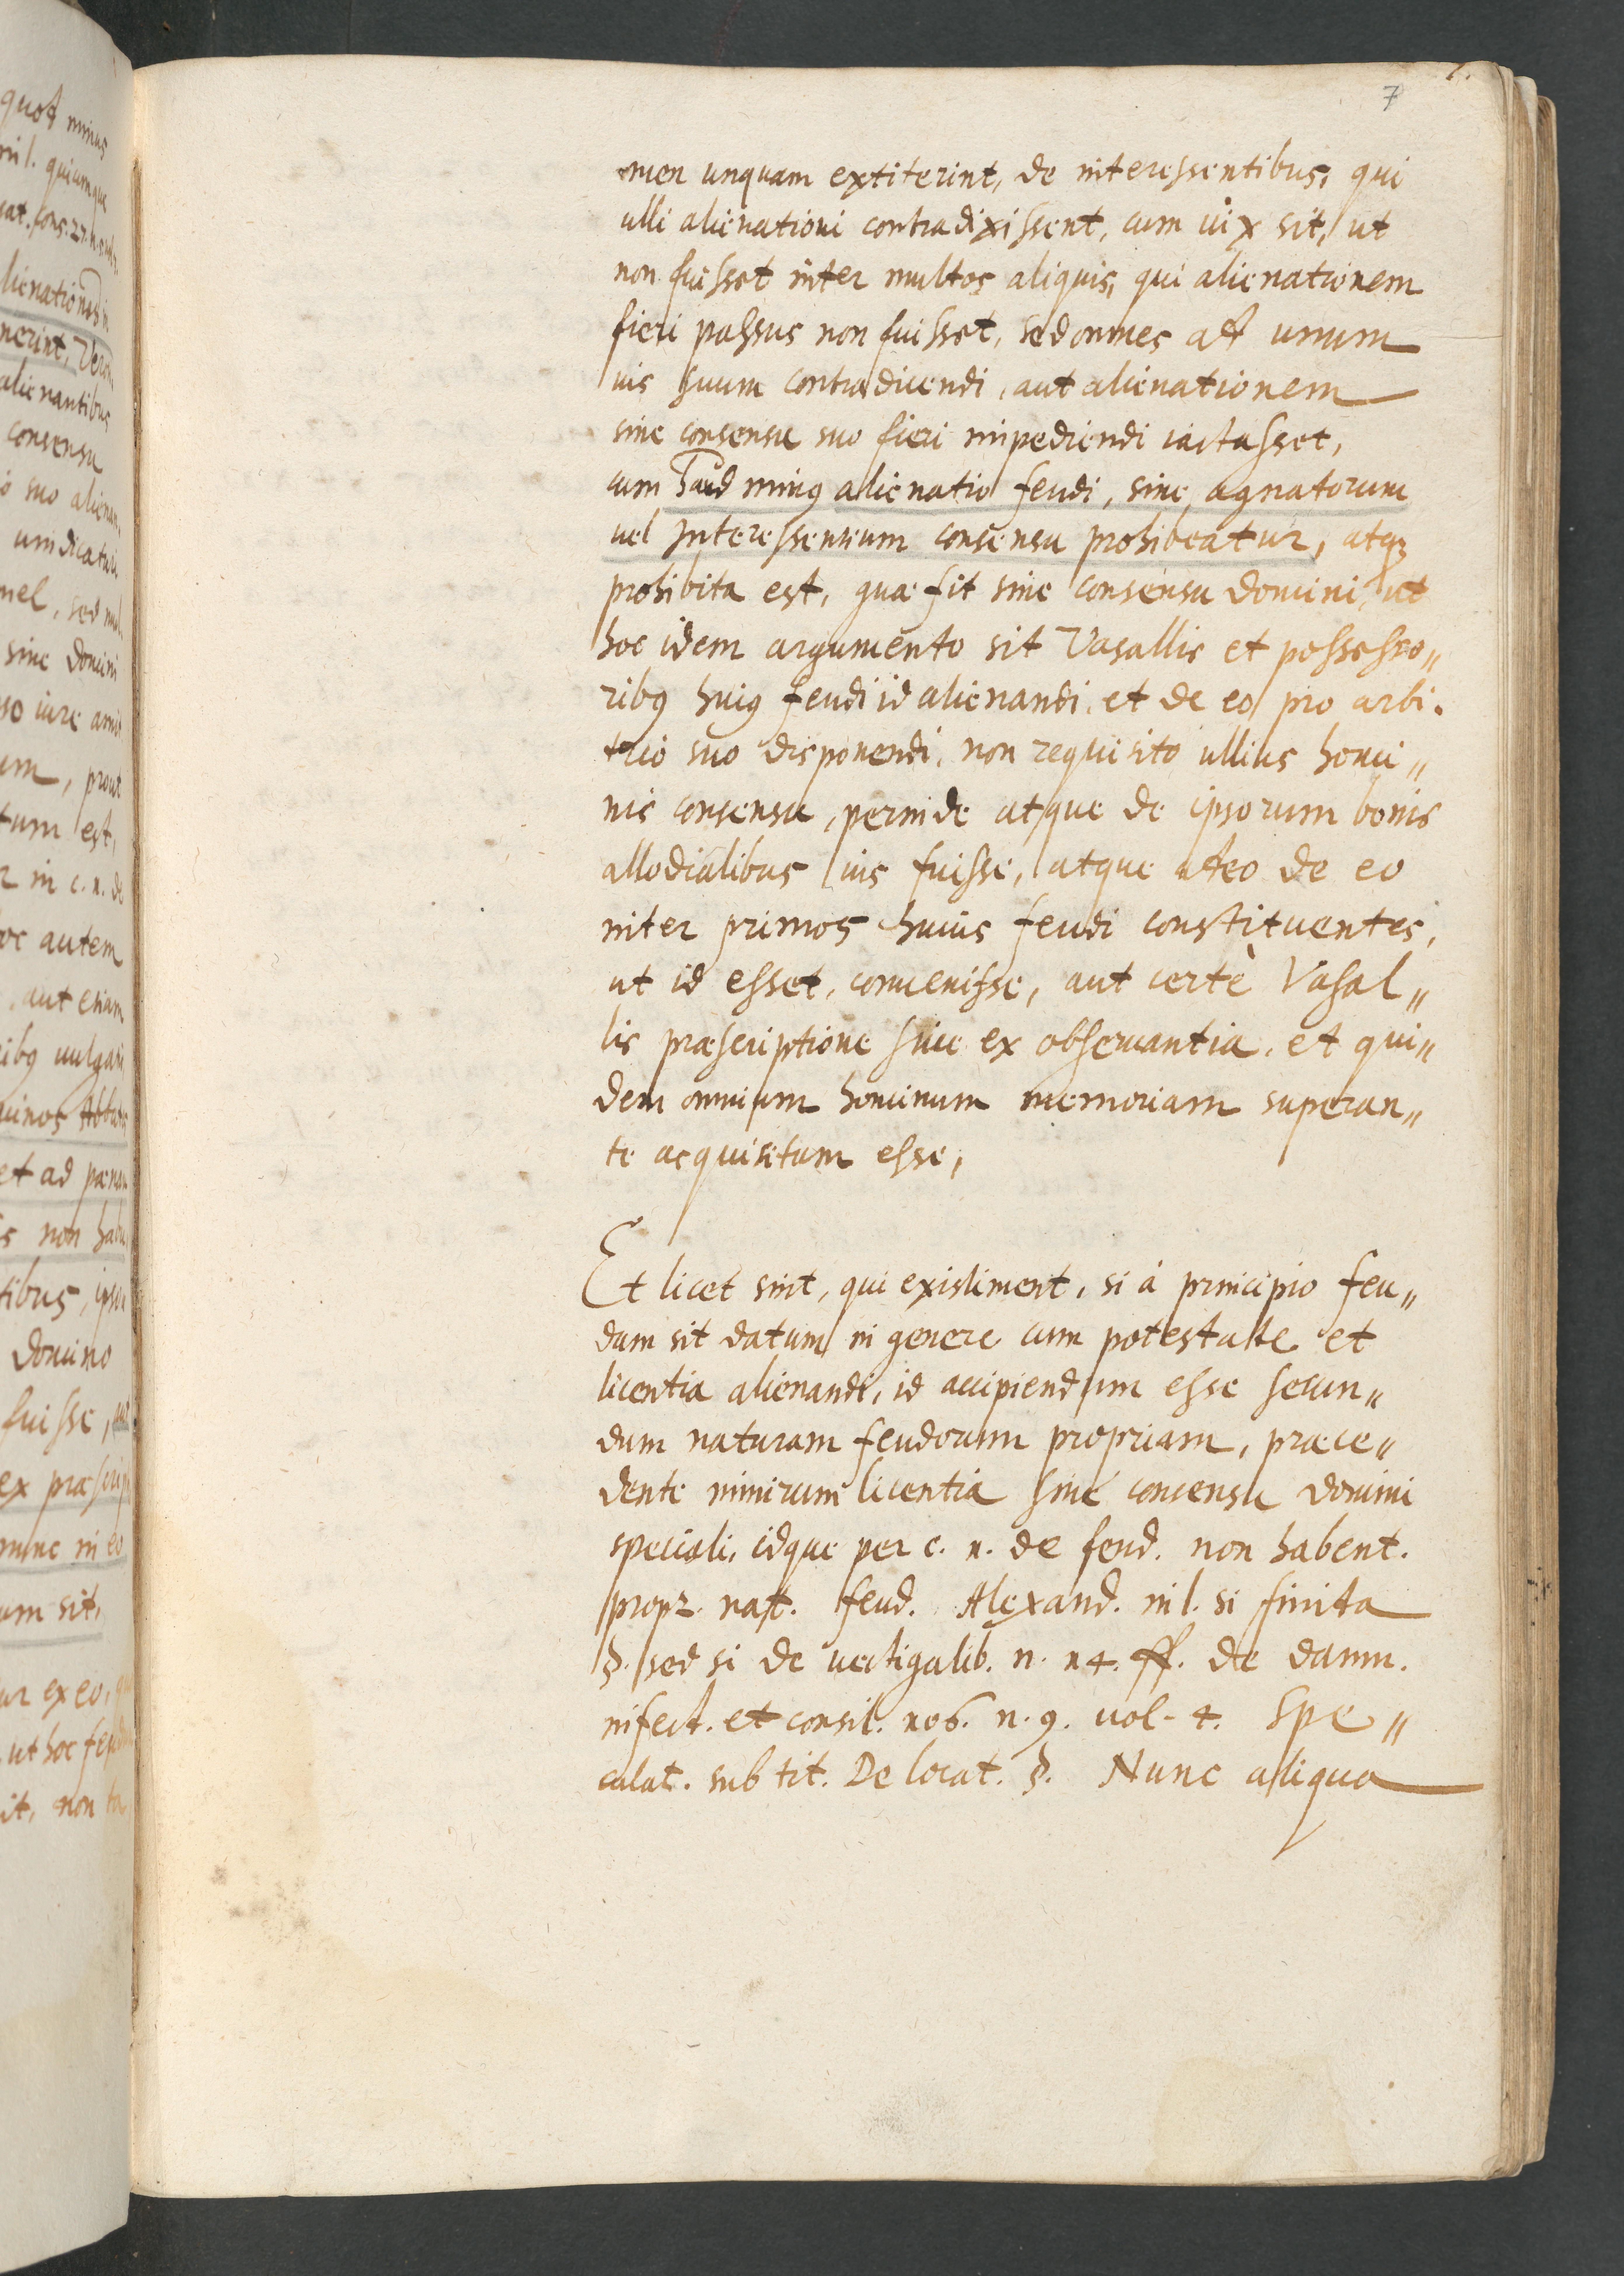 7
men unquam extiterint, de interessentibus, qui
ulli alienationi contradixissent, cum uix sit, ut
non fuisset inter multos aliquis, qui alienationem
fieri passus non fuisset, sed omnes ad unum
ius suum contradicendi, aut alienationem
sine consensu suo fieri impediendi iactasset,
cum haud minus alienatio feudi, sine agnatorum
uel Interessentium consensu prohibeatur, atq;
prohibita est, quæ fit sine consensu domini, ut
hoc idem argumento sit Vasallis et possesso„
ribus huius feudi id alienandi, et de eo pro arbi.
trio suo disponendi, non requisito ullius homi„
nis consensu, perinde atque de ipsorum bonis
allodialibus ius fuisse, atque adeo de eo
inter primos huius feudi constituentes,
ut id esset, conuenisse, aut certè Vasal„
lis præscriptione siue ex obseruantia, et qui„
dem omnium hominum memoriam superan„
te acquisitum esse,
Et licet sint, qui existiment, si à principio feu„
dum sit datum in genere cum potestate et
licentia alienandi, id accipiendum esse secun„
dum naturam feudorum propriam, præce„
dente nimirum licentia siue consensu domini
speciali, idque per c. 1. de feud. non habent.
propr. nat. feud. Alexand. in l. si finita
§. sed si de uectigalib. n. 14. ff. de damn.
infect. et consil. 106. n. 9. vol. 4. Spe„
culat. sub tit. De locat. §. Nunc aliqua